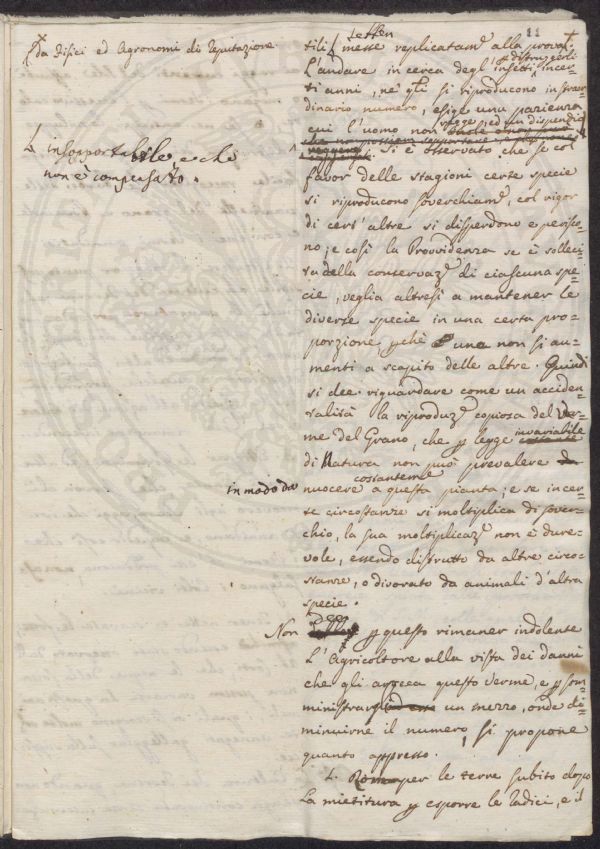 11
x da Fisici ed Agronomi di reputazione.
tili messe replicatamᵉ alla prova x.
L'andare in cerca degl'insetti, incer-
distruggerli
ti anni, ne' qli si riproducono instraor-
dinario numero, esige una pazienza
cui l'uomo non
regge, ed un dispendio
L insopportabile, e che
non è compensato.
si è osservato che se col
favor delle stagioni certe specie
si riproducono soverchiamᵉ, col vigor
di cert'altre si disperdono e perisco-
no; e così la Provvidenza se è solleci-
ta della conservazᵉ di ciascuna spe-
cie, veglia altresì a mantener le
diverse specie in una certa pro-
porzione pchè una non si au-
menti a scapito delle altre. Quindi
si dee riguardare come un acciden-
talità la riproduzᵉ copiosa del Ver-
me del Grano, che p legge invariabile
di Natura non può prevalere
in modo da
costantemᵉ
nuocere a questa pianta; e se incer-
te circostanze si moltiplica di sover-
chio, la sua moltiplicazᵉ non è dure-
vole, essendo distrutto da altre circo-
stanze, o divorato da animali d'altra
specie.
Non dee p questo rimaner indolente
L'Agricoltore alla vista dei danni
che gli arreca questo Verme, e p som-
ministrar un mezzo, onde di-
minuirne il numero, si propone
quanto appresso.
1. Romper le terre subito dopo
la mietitura p esporre le radici, e il